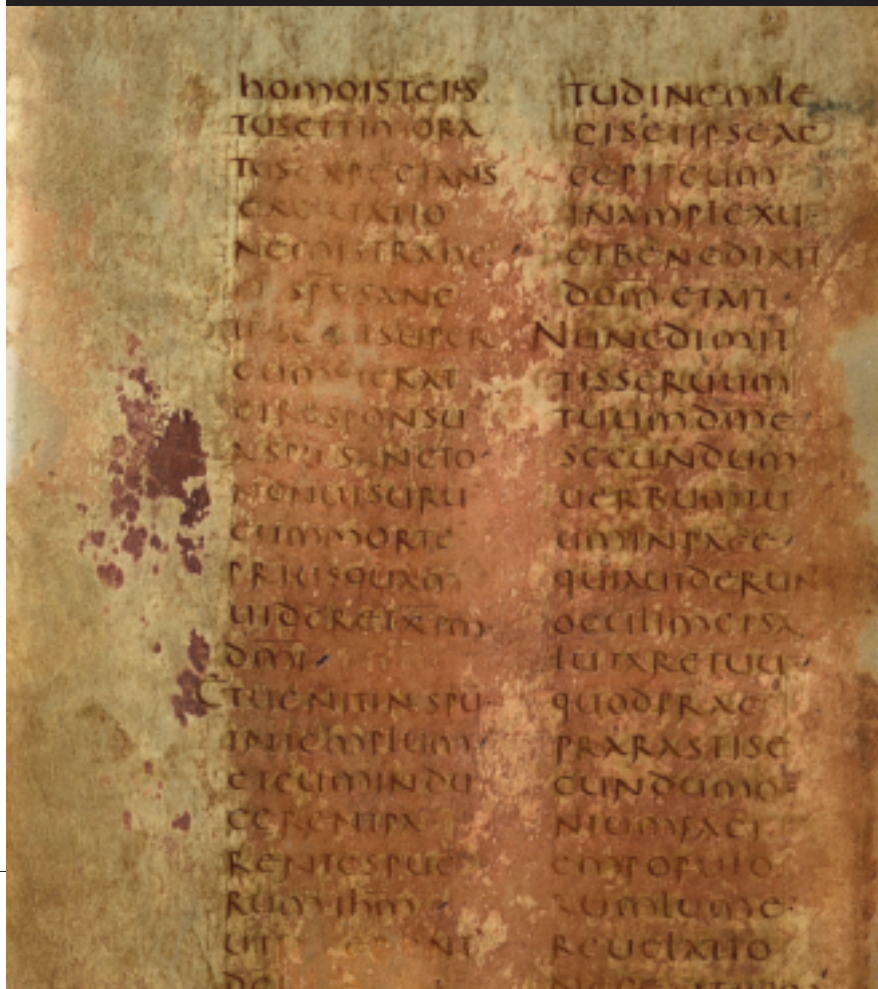 homoisteius
tusettimora
tusexpectans
exortatio
nemistrahe
et sps sanc
super
cumeterat
eiresponsu
nspusancto
nonuisuru
cummorte
priusquam
uideretxpm
dmi
etuenitinspu
intemplum
etcumindu
cerentpa
rentespue
rumihm
tudinemle
eisetipseac
cepiteum
inamplexu
etbenedixit
dom etait
Nuncdimit
tisseruum
tuumdme
secundum
uerbumtu
uminpace
quiauiderun
oculimeisa
lutaretuu
quodprae
pararastise
cundumo
niumfaci
empopulo
rumlume
reuelatio